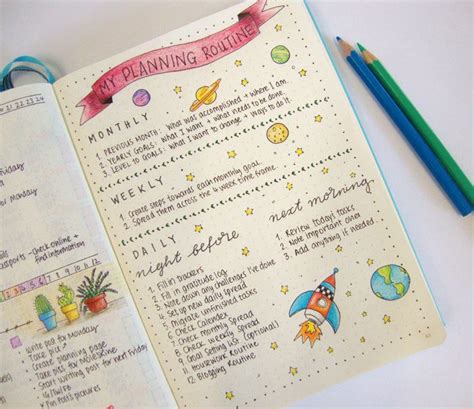 21 22 23 24
Friday
Monday
passports - Check online +
find information
7 8 9 10 11 12
Write post for Monday
Take pics
Creating planning page
Take pics for Moleskine
Start writing post for next Friday
Fin Post's pictures
MY PLANNING ROUTINE
MONTHLY
1. PREVIOUS MONTH: What was accomplished + where I am.
2. YEARLY GOALS: what I want + what needs to be done.
3. LEVEL 10 GOALS: what I want to change + ways to do it.
WEEKLY
1. Create steps towards each monthly goal.
2. Spread them across the 4 week time frame.
DAILY
night before
1. Fill in trackers
2. Fill in gratitude log
3. Note down any challenges I've done
4. Set up new daily spread
5. Migrate unfinished tasks
6. Check Calendex
7. Check monthly spread
8. Check weekly spread
9. Goal setting list (optional)
11. Housework Routine
12. Blogging Routine
next morning
1. Review today's tasks
2. Note important ones
3. Add anything if needed